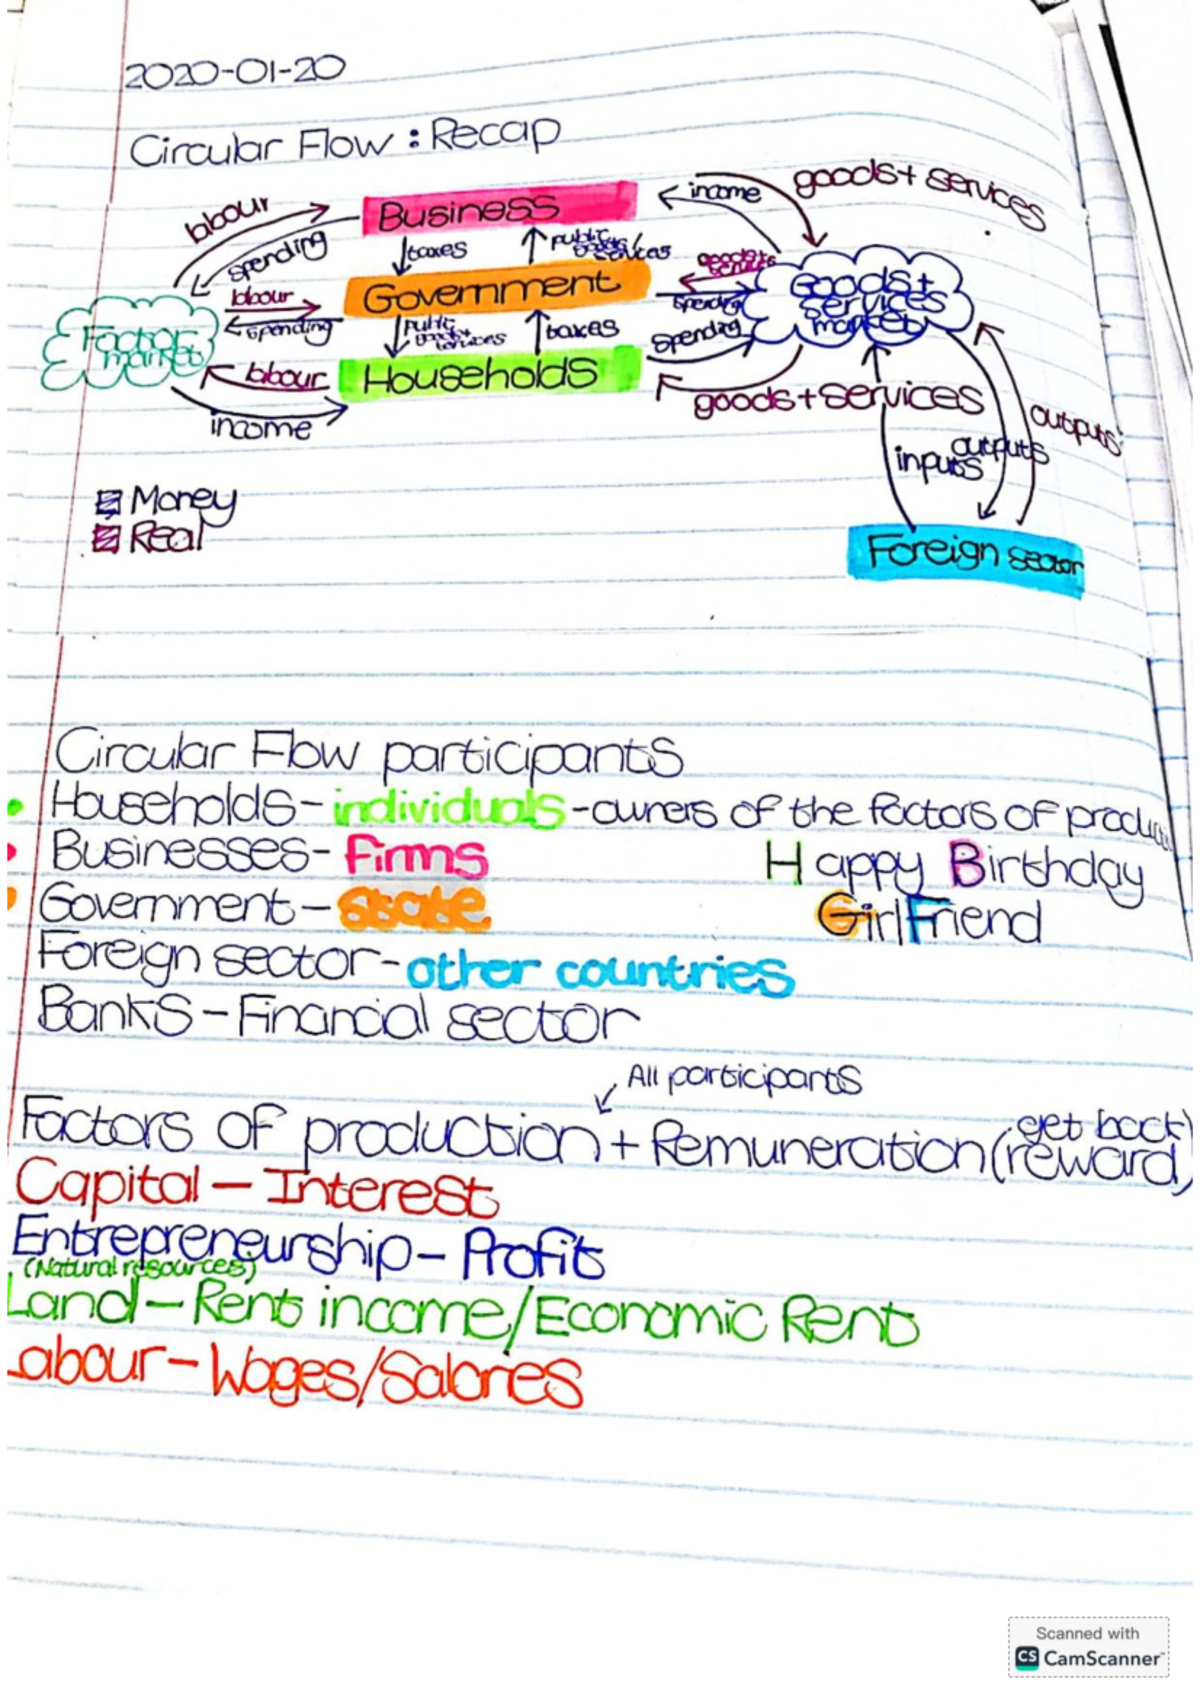 2020-01-20
Circular Flow : Recap
labour
Business
income
goods + services
spending
taxes
public goods/services
goods + services
labour
Government
spending
Goods + Services market
Factor market
spending
public goods + services
taxes
spending
labour
Households
goods + services
income
outputs
inputs
outputs
Money
Real
Foreign sector
Circular Flow participants
Households - individuals - owners of the factors of produc
Businesses - firms
Happy Birthday
Government - State
GirlFriend
Foreign sector - other countries
Banks - Financial sector
All participants
Factors of production + Remuneration (reward)
get back
Capital - Interest
Entrepreneurship - Profit
(Natural resources)
Land - Rent income/Economic Rent
Labour - Wages/Salaries
Scanned with
CS CamScanner